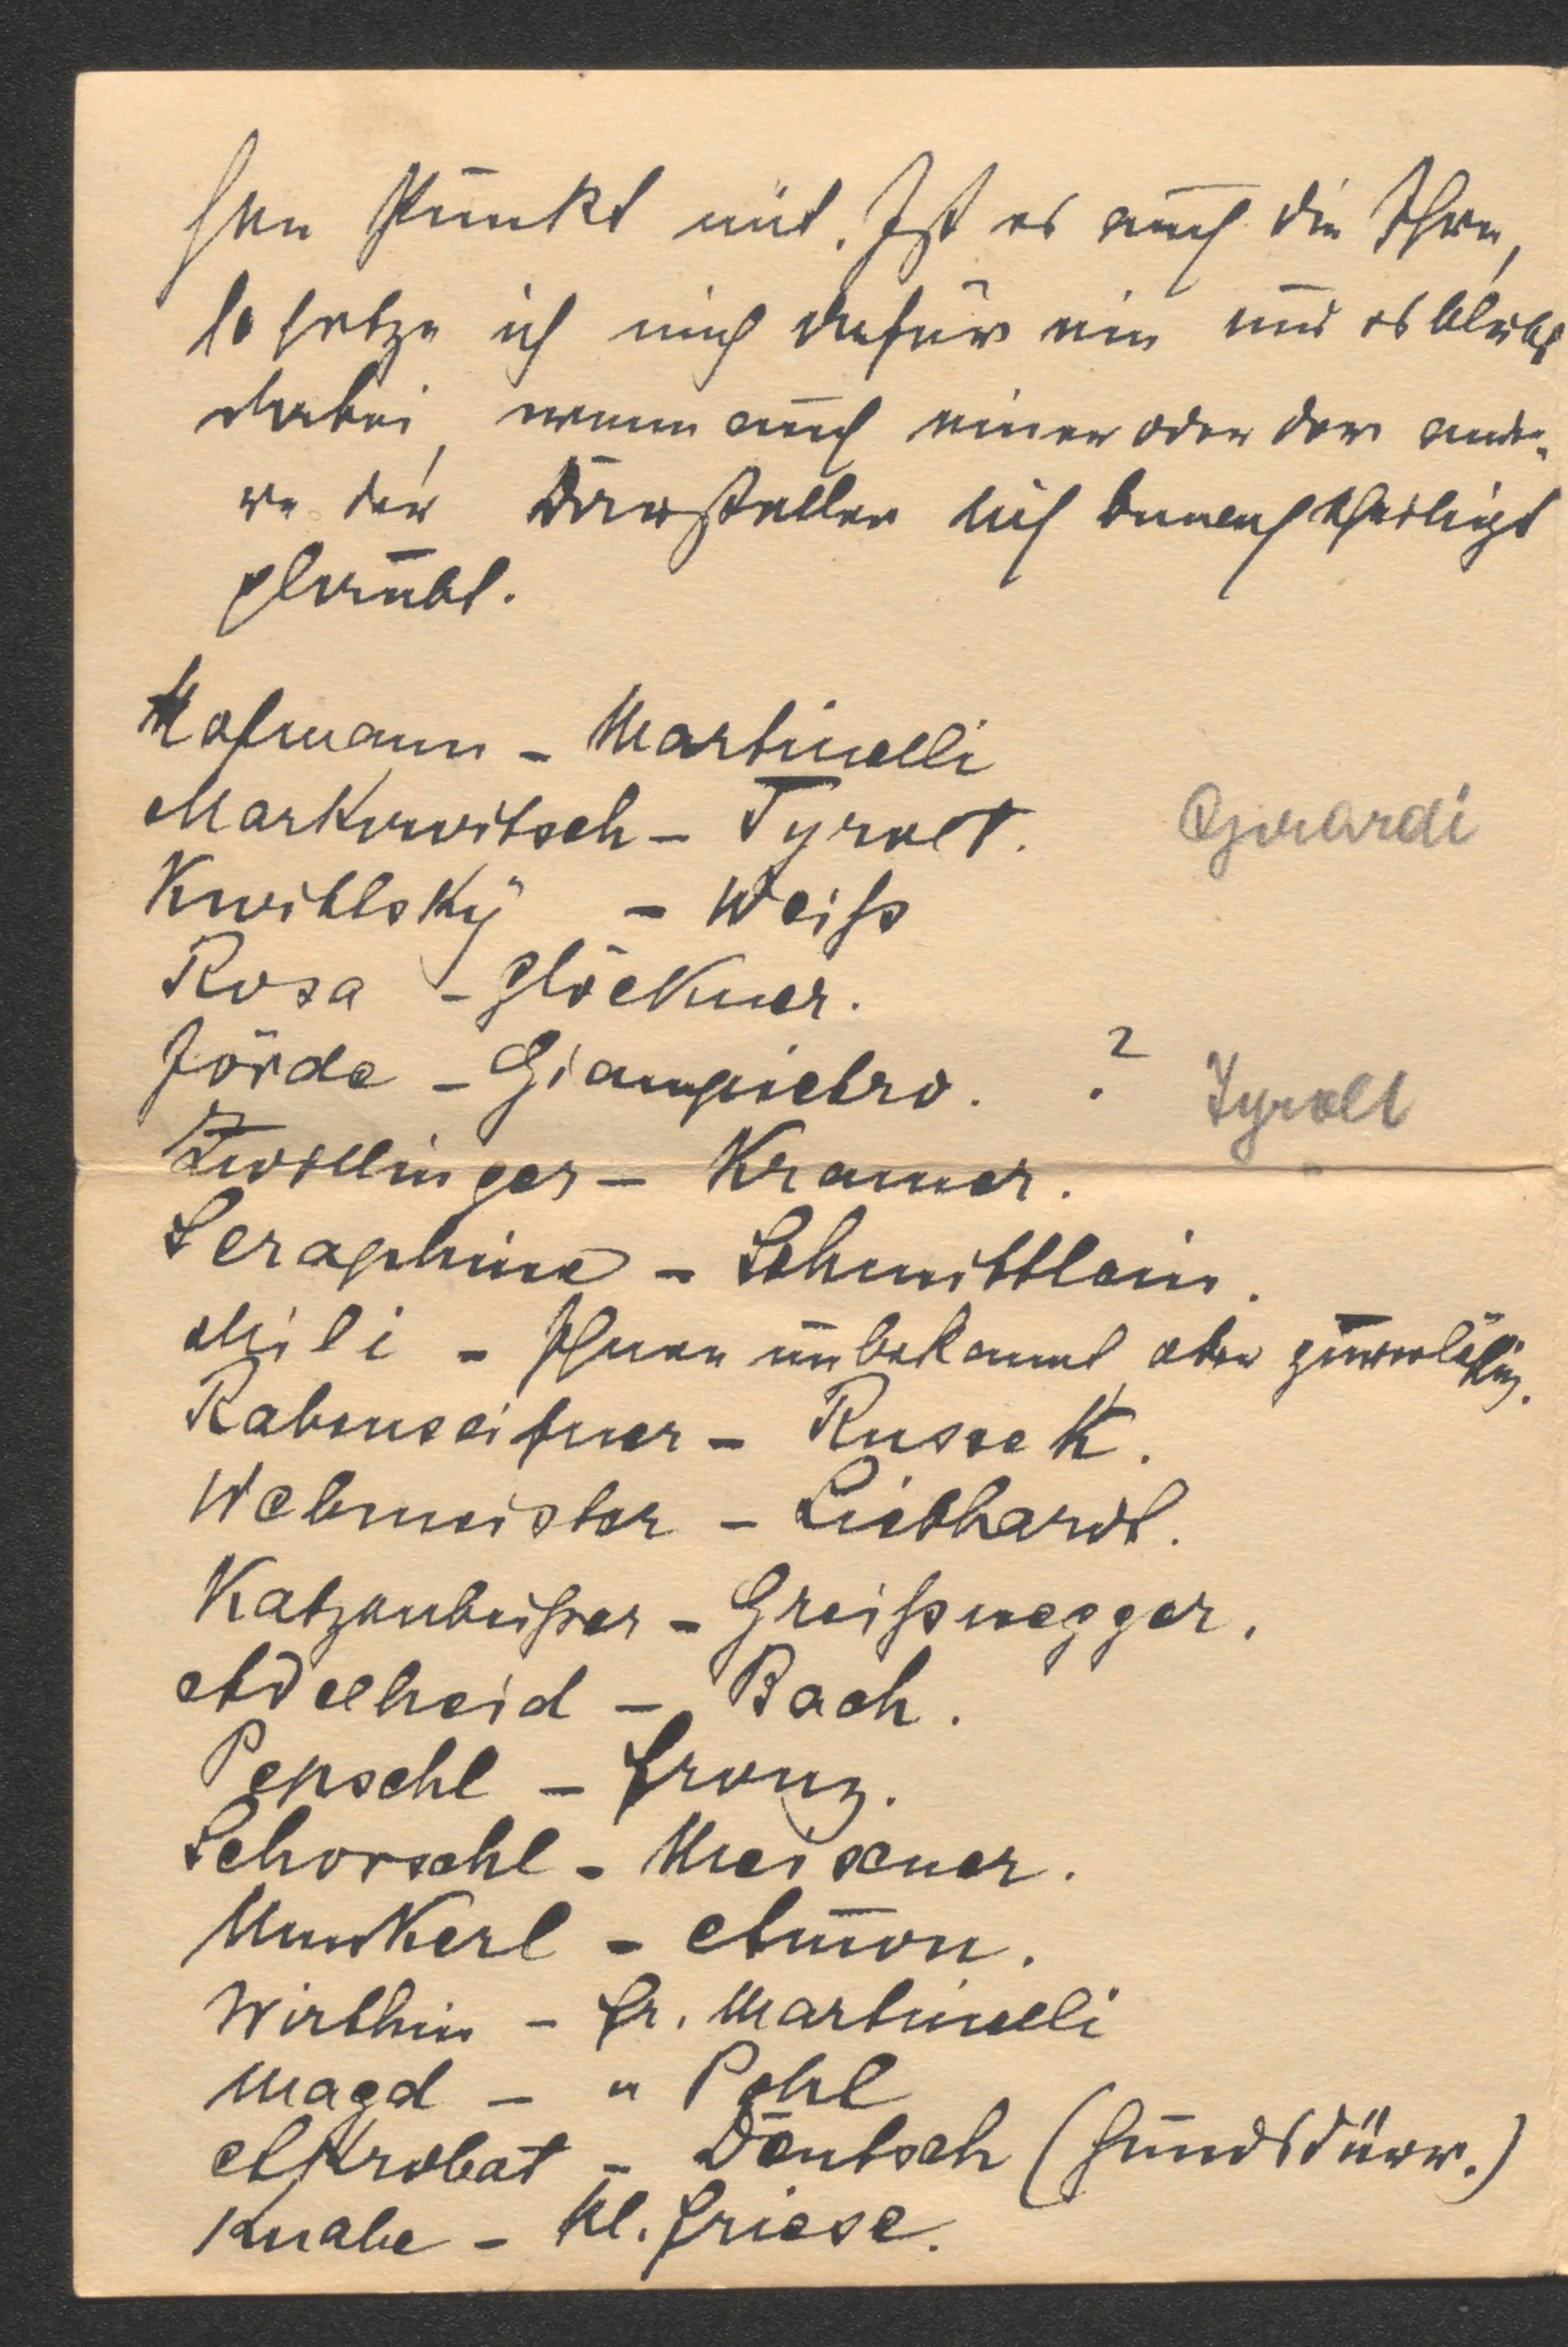 sen Punkt mit. Ist es auch die Ihre,
so setze ich mich dafür ein und es bleibt
dabei, wenn auch einer oder der ande-
re der Darsteller sich benachtheiligt
glaubt.
Hofmann – Martinelli
Markowitsch – Tyrolt. Girardi
Kwitlsky – Weiß
Rosa – Glöckner.
Jörde – Giampietro. ? Tyrolt
Zwillinger – Kramer.
Seraphine – Schmittlein.
Mili – Ihnen unbekannt, aber zuverläßig.
Rabenseifner – Russek.
Webmeister – Liebhardt.
Katzenbeißer – Greißnegger.
Adelheid – Bach.
Pepschl – Franz.
Schorschl – Meixner.
Munkerl – Amon.
Wirthin – Fr. Martinelli
Magd – " Pohl
Akrobat – Deutsch (Hundsdürr.)
Knabe – Kl. Friese.